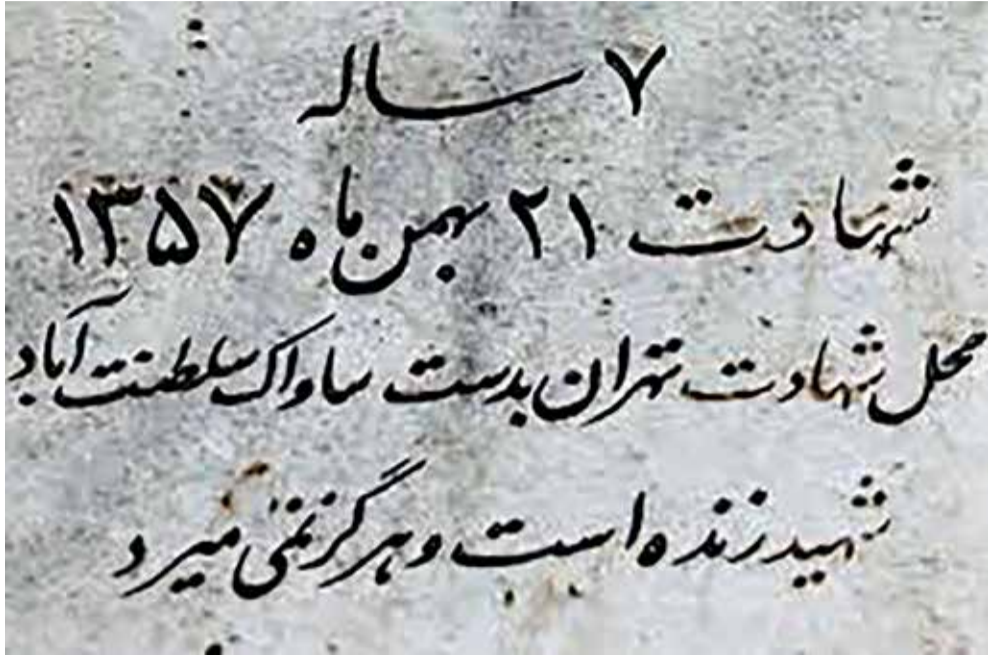 ۷ ساله
شهادت ۲۱ بهمن ماه ۱۳۵۷
محل شهادت تهران بدست ساواک سلطنت آباد
شهید زنده است و هرگز نمی میرد